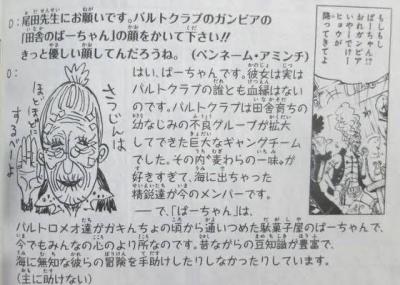 D：尾田先生にお願いです。バルトクラブのガンビアの
「田舎のばーちゃん」の顔をかいて下さい!!
きっと優しい顔してんだろうね。（ペンネーム・アミンチ）
O：
さつじんは
ほどほどに
するべーよ
はい、ばーちゃんです。彼女は実は
バルトクラブの誰とも血縁はない
のです。バルトクラブは田舎育ちの
幼なじみの不良グループが拡大
してできた巨大なギャングチーム
でした。その内“麦わらの一味”が
好きすぎて、海に出ちゃった
精鋭達が今のメンバーです。
――で、「ばーちゃん」は、
バルトロメオ達ががきんちょの頃から通いつめた駄菓子屋のばーちゃんで、
今でもみんなの心のより所なのです。昔ながらの豆知識が豊富で、
海に無知な彼らの冒険を手助けしたりしなかったりしています。
（主に助けない）
もしもし
ばーちゃん!?
おれガンビア
いやーすげー
ヒョウが
降ってきてよ